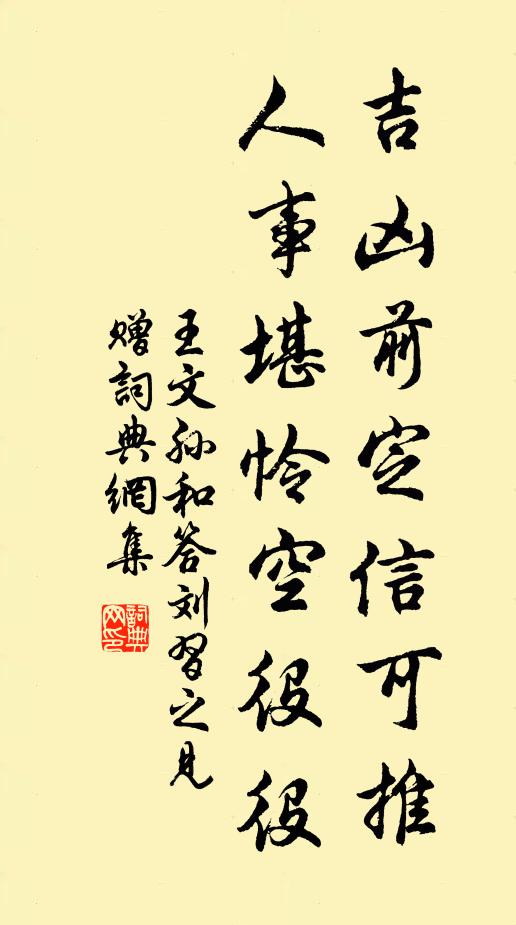 吉凶前定信可推
人事堪怜空役役
王文孙和答刘习之见
赠詞典網集
詞典网印